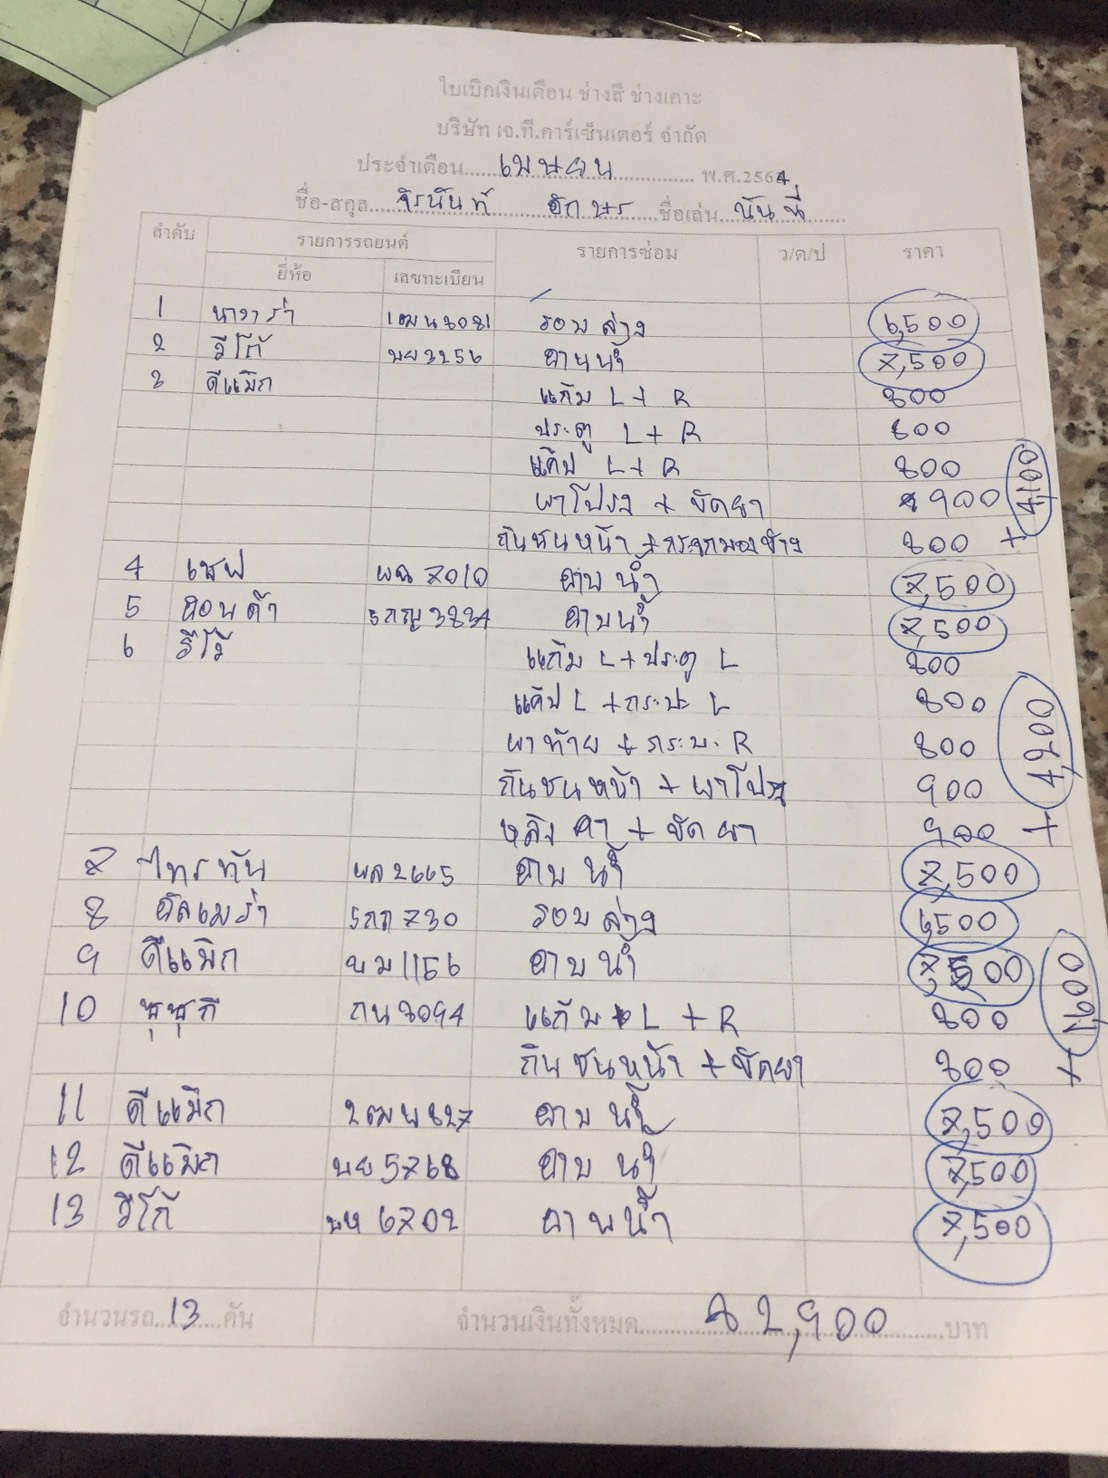 ใบเบิกเงินเดือน ช่างสี ช่างเคาะ
บริษัท เจ.ที.คาร์เซ็นเตอร์ จำกัด
ประจำเดือน.....เมษยน.....พ.ศ.2564
ชื่อ-สกุล....จิรนันท์ อักษร....ชื่อเล่น..นันนี่.....
ลำดับ รายการรถยนต์ รายการซ่อม ว/ด/ป ราคา
ยี่ห้อ เลขทะเบียน
1 นาวาร่า 1ฒน3081 รอบล่าง 6,500
2 วีโก้ บย3256 อาบน้ำ 7,500
3 ดีแม็ก แก้ม L + R 800
ประตู L + R 800
แค๊ป L + R 800
ฝาโปรง + ขัดยา 900 4,100
กันชนหน้า + กระจกมองข้าง 800 +
4 เชฟ ผฉ 7010 อาบน้ำ 7,500
5 ฮอนด้า ร กญ 3834 อาบน้ำ 7,500
6 รีโว้ แก้ม L + ประตู L 800
แค๊ป L + กระบะ L 800
ฝาท้าย + กระบะ R 800 4,200
กันชนหน้า + ฝาโปรง 900
หลังคา + ขัดยา 900 +
7 ไทรทัน ผล2665 อาบน้ำ 7,500
8 อัลเมร่า รกก 730 รอบล่าง 6,500
9 ดีแม็ก ยม1156 อาบน้ำ 7,500
10 ซุซุกิ กน3094 แก้ม L + R 800 1,600
กันชนหน้า + ขัดยา 800 +
11 ดีแม็ก 2ฒฬ827 อาบน้ำ 7,500
12 ดีแม็ก บย5768 อาบน้ำ 7,500
13 วีโก้ บห 6702 อาบน้ำ 7,500
จำนวนรถ..13....คัน จำนวนเงินทั้งหมด.....82,900.....บาท